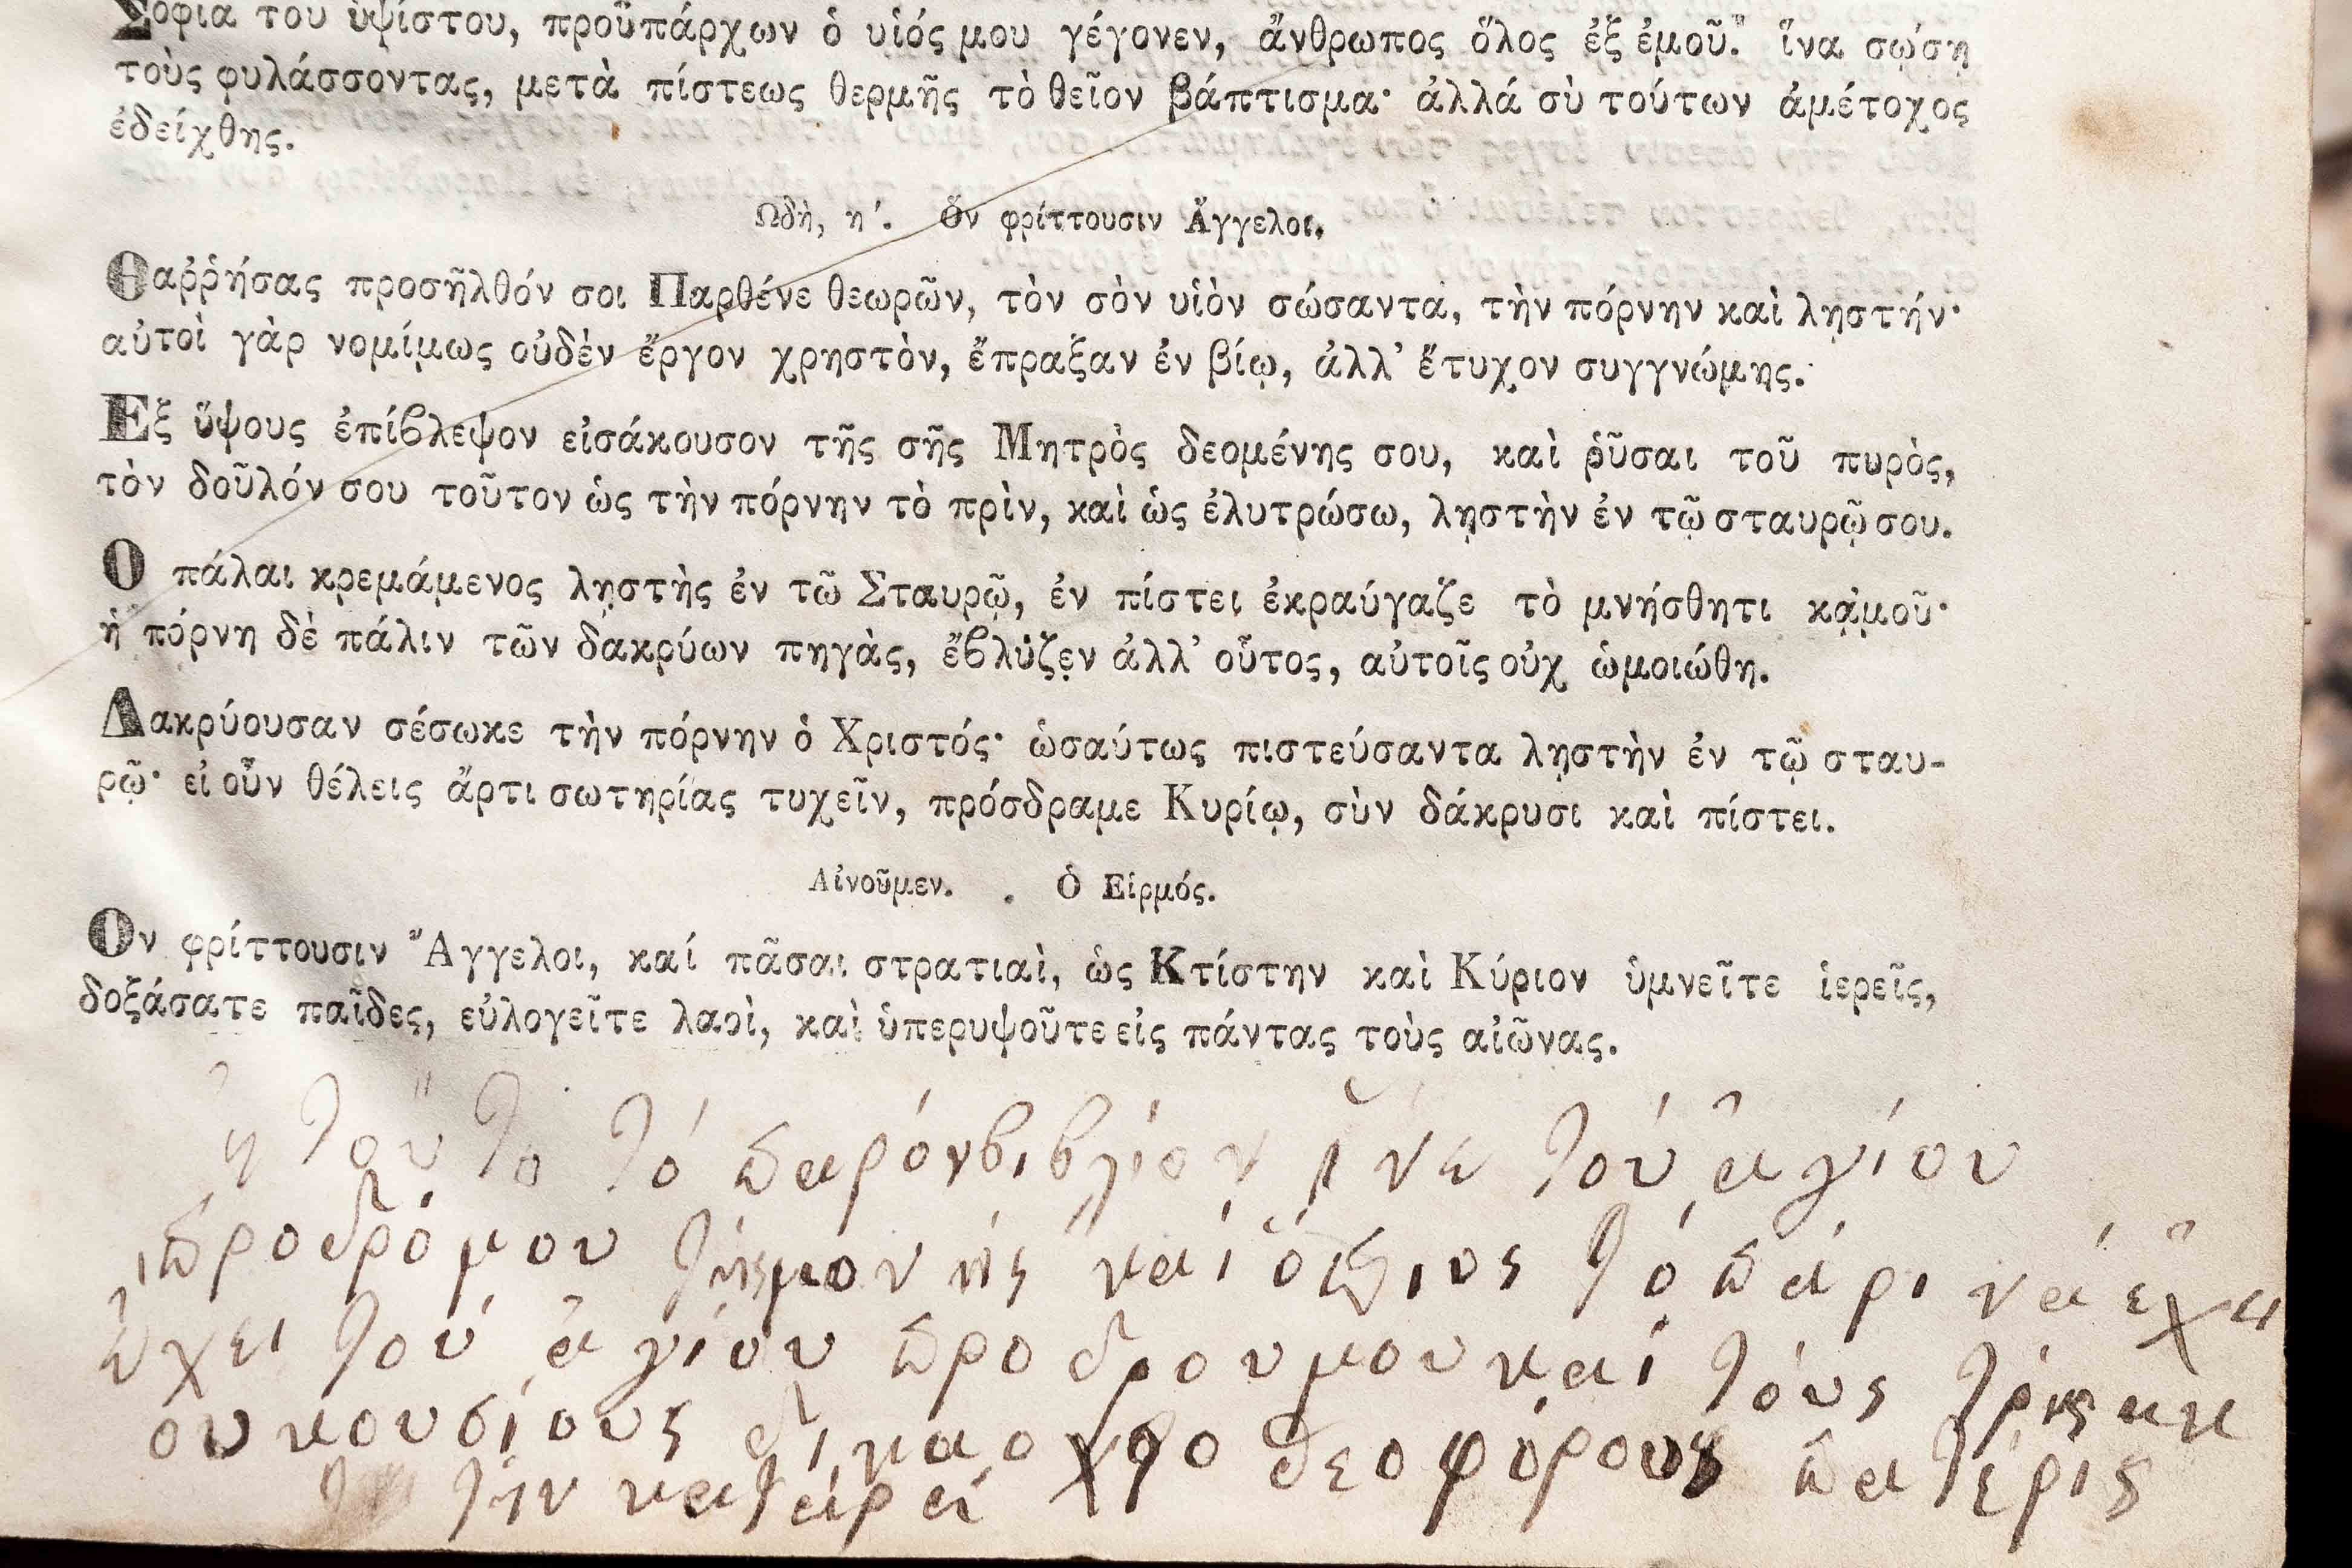 Σοφία τοῦ ὑψίστου, προϋπάρχων ὁ υἱός μου γέγονεν, ἄνθρωπος ὅλος ἐξ ἐμοῦ." ἵνα σῴσῃ
τοὺς φυλάσσοντας, μετὰ πίστεως θερμῆς τὸ θεῖον βάπτισμα· ἀλλά σὺ τούτων ἀμέτοχος
ἐδείχθης.
Ωδὴ, η΄. Ὅν φρίττουσιν Ἄγγελοι.
Θαῤῥήσας προσῆλθόν σοι Παρθένε θεωρῶν, τὸν σὸν υἱὸν σώσαντα, τὴν πόρνην καὶ λῃστήν·
αὐτοὶ γὰρ νομίμως οὐδὲν ἔργον χρηστὸν, ἔπραξαν ἐν βίῳ, ἀλλ' ἔτυχον συγγνώμης.
Εξ ὕψους ἐπίϐλεψον εἰσάκουσον τῆς σῆς Μητρὸς δεομένης σου, καὶ ῥῦσαι τοῦ πυρὸς,
τὸν δοῦλόν σου τοῦτον ὡς τὴν πόρνην τὸ πρὶν, καὶ ὡς ἐλυτρώσω, λῃστὴν ἐν τῷ σταυρῷ σου.
Ο πάλαι κρεμάμενος λῃστὴς ἐν τῶ Σταυρῷ, ἐν πίστει ἐκραύγαζε τὸ μνήσθητι κᾀμοῦ·
ἡ πόρνη δὲ πάλιν τῶν δακρύων πηγὰς, ἔϐλύζεν ἀλλ' οὗτος, αὐτοῖς οὐχ ὡμοιώθη.
Δακρύουσαν σέσωκε τὴν πόρνην ὁ Χριστός· ὡσαύτως πιστεύσαντα λῃστὴν ἐν τῷ σταυ-
ρῷ· εἰ οὖν θέλεις ἄρτι σωτηρίας τυχεῖν, πρόσδραμε Κυρίῳ, σὺν δάκρυσι καὶ πίστει.
Αἰνοῦμεν. . Ὁ Εἱρμός.
Ον φρίττουσιν Ἄγγελοι, καί πᾶσαι στρατιαὶ, ὡς Κτίστην καὶ Κύριον ὑμνεῖτε ἱερεῖς,
δοξάσατε παῖδες, εὐλογεῖτε λαοὶ, καὶ ὑπερυψοῦτε εἰς πάντας τοὺς αἰῶνας.
τούτο τό παρόν βιβλίον ἦνε τού ἁγίου
προδρόμου τής μονής καί ὁπιος τό πάρι νά ἔχει
τού ἁγίου προδρουμου καί τούς τρις
δεοφόρους πατέρις
τήν κατάρα